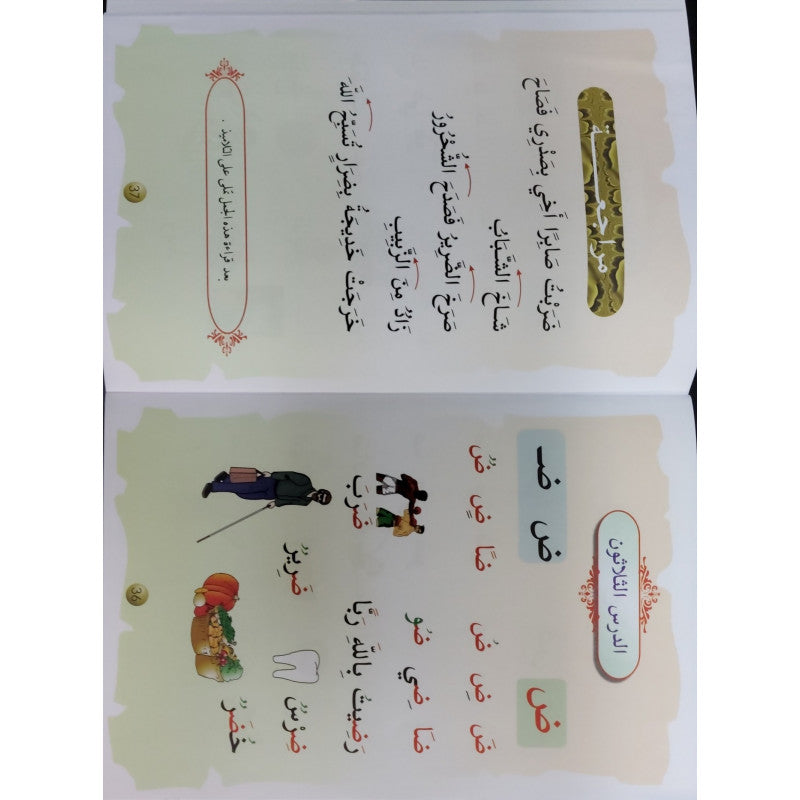 الدرس الثلاثون
ض
ض ضـ
ضَ ضِ ضُ
ضًا ضٍ ضٌ
ضَا ضِي ضُو
رَضِيتُ بِاللَّهِ رَبًّا
ضَرَبَ
ضِرْسٌ
ضَرِيرٌ
خُضَرٌ
36
مراجعة
ضَرَبْتُ صَابِرًا أَخِي بِصَدْرِي فَصَاحَ
شَاخَ الشَّبَابُ
صَرَخَ الضَّرِيرُ فَصَدَحَ الشُّحْرُورُ
زَادٌ مِنَ الزَّبِيبِ
خَرَجَتْ خَدِيجَةُ بِضِرَارٍ تُسَبِّحُ اللَّهَ
بعد قراءة هذه الجمل تملى على التلاميذ .
37